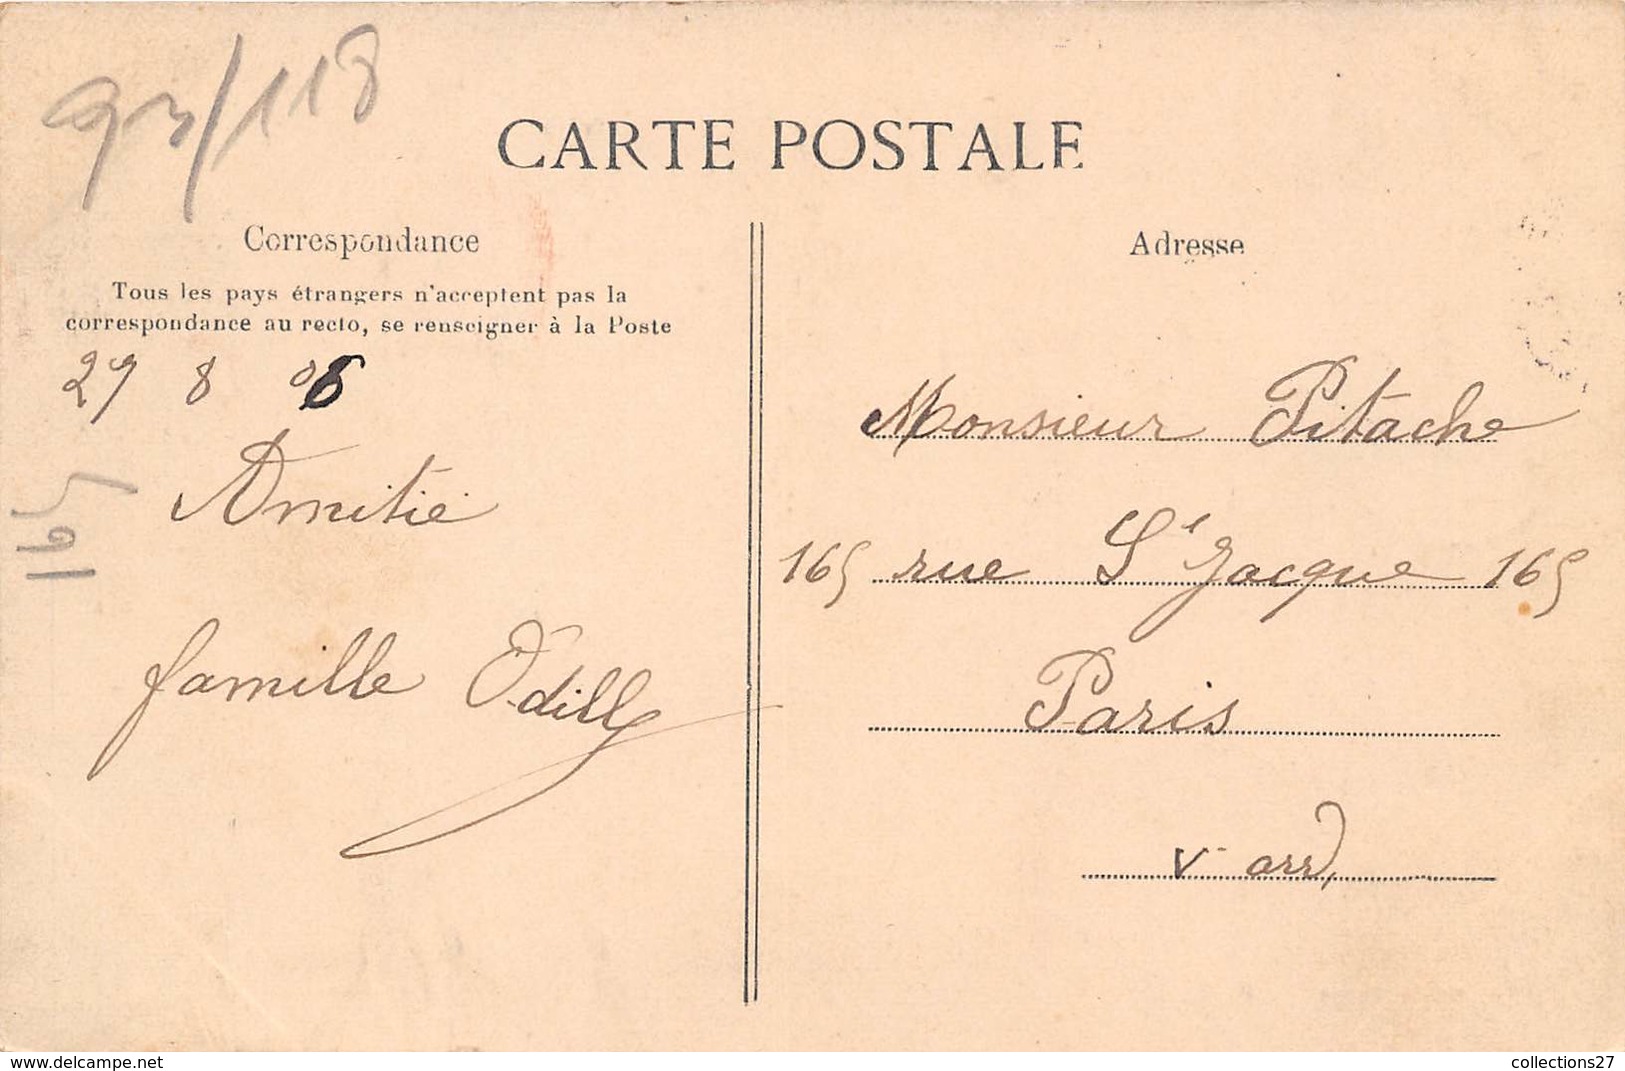 93/118
CARTE POSTALE
Correspondance
Tous les pays étrangers n'acceptent pas la
correspondance au recto, se renseigner à la Poste
27 8 06
Amitié
famille Odilly
165
Adresse
Monsieur Pitache
165 rue St Jacque 165
Paris
V arrd,
www.delcampe.net
collections27